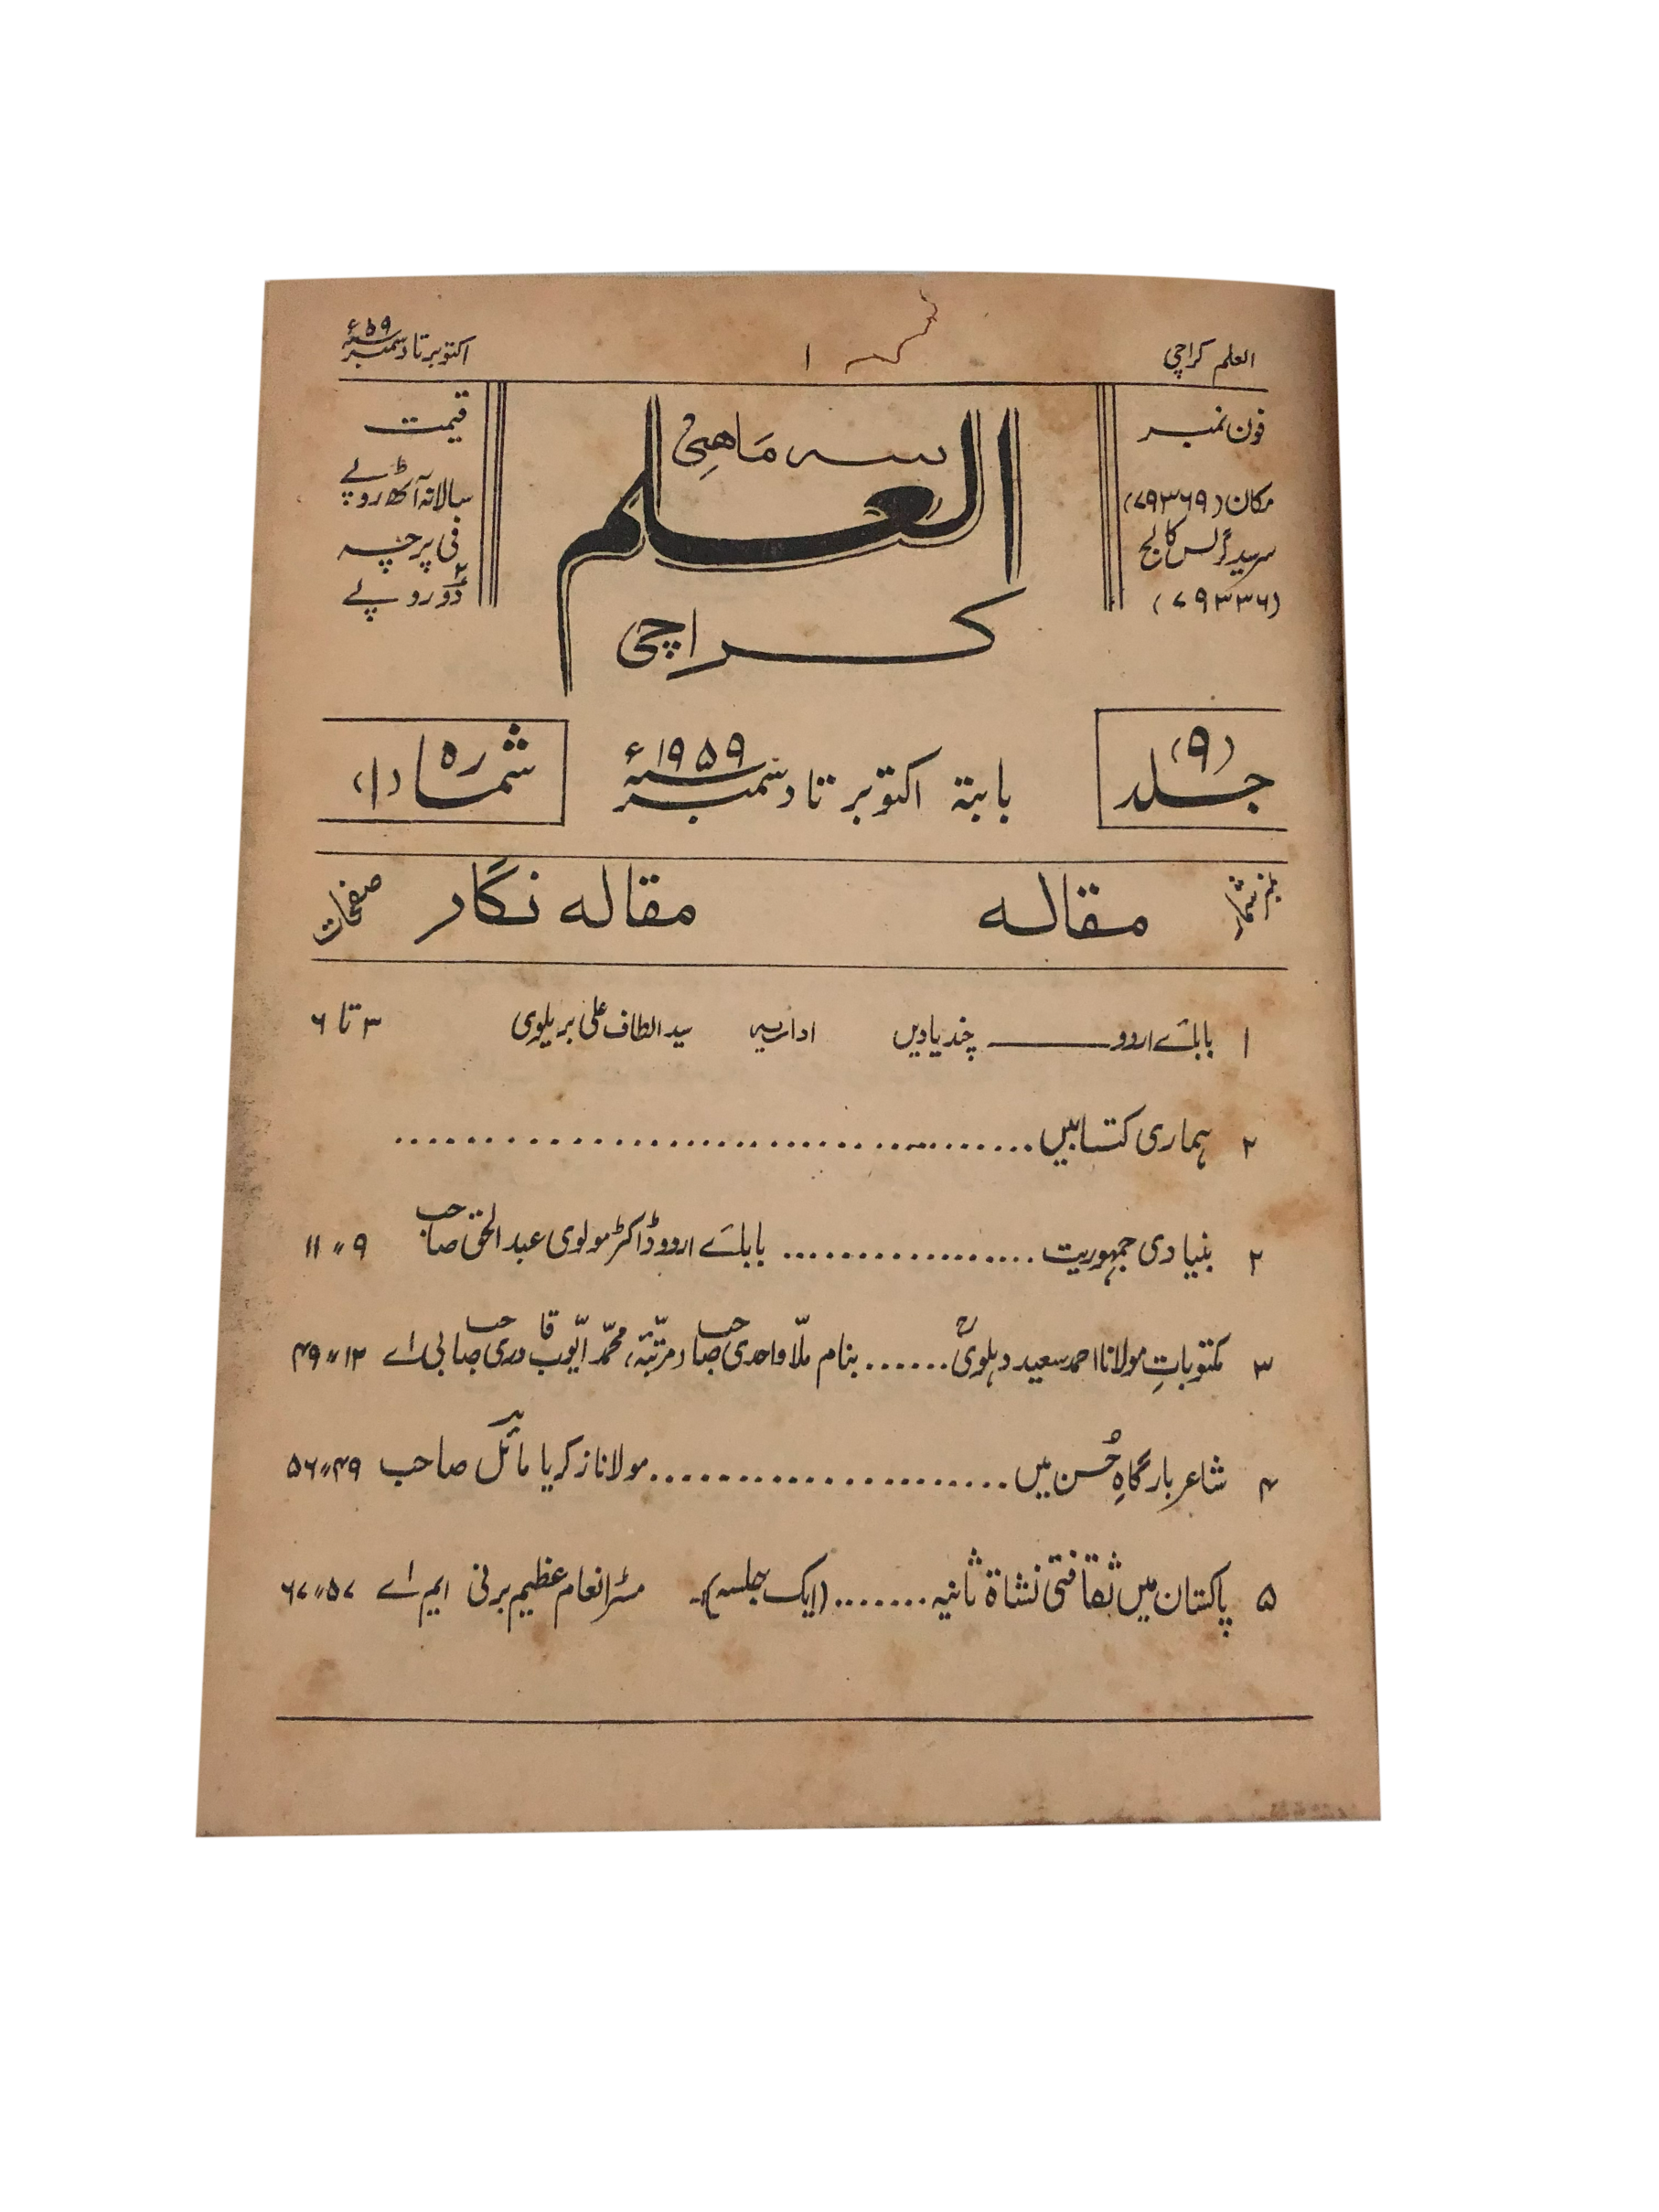 العلم کراچی ۱ اکتوبر تا دسمبر سنہ ۵۹ء
فون نمبر
مکان (۷۹۳۶۹)
سرسید گرلس کالج
(۷۹۳۳۶)
سہ ماہی
العلم
کراچی
قیمت
سالانہ آٹھ روپے
فی پرچہ
دو روپئے
جلد (۹)
بابتہ اکتوبر تا دسمبر سنہ ۱۹۵۹ء
شمارہ (۱)
نمبر شمار مقالہ مقالہ نگار صفحات
۱ بابائے اردو ــــــ چند یادیں اداریہ سید الطاف علی بریلوی ۳ تا ۶
۲ ہماری کتابیں ........................................
۲ بنیادی جمہوریت .................. بابائے اردو ڈاکٹر مولوی عبدالحق صاحب ۹ " ۱۱
۳ مکتوباتِ مولانا احمد سعید دہلویؒ ...... بنام ملّا واحدی صاحب (مرتّبہ، محمّد ایّوب قادری صاحب بی اے ۱۲ " ۴۹
۴ شاعر بارگاہِ حُسن میں ...................... مولانا زکریا مائل صاحب ۴۹ " ۵۶
۵ پاکستان میں ثقافتی نشاۃ ثانیہ ....... (ایک جلسہ)۔ مسٹر انعام عظیم برنی ایم اے ۵۷ " ۶۷